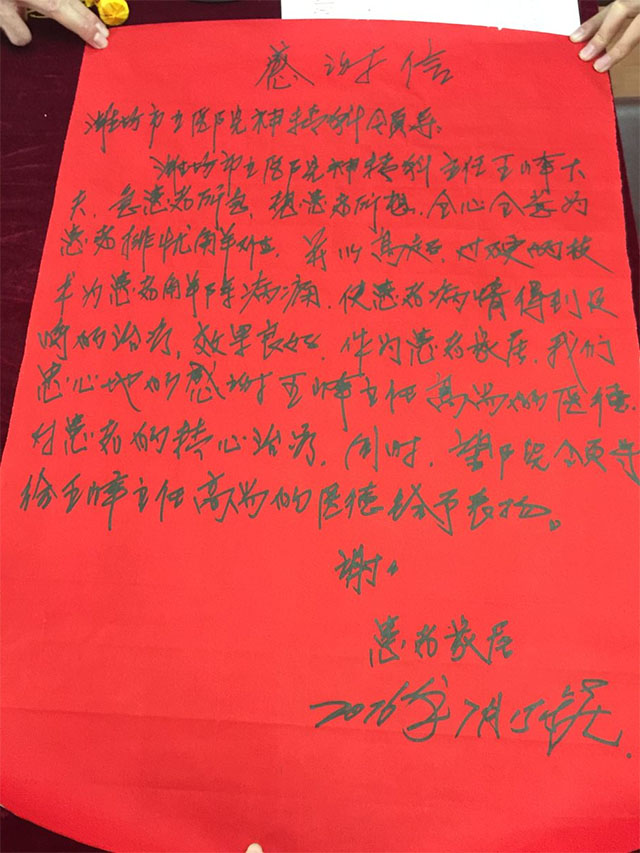 感谢信
潍坊市立医院神精科领导:
潍坊市立医院神精科主任王峰大
夫,急患者所急,想患者所想,全心全意为
患者排忧解难,并以高超,过硬的技
术为患者解除病痛,使患者病情得到及
时的治疗,效果良好,作为患者家属,我们
忠心地的感谢王峰主任高尚的医德,
对患者的精心治疗,同时,望医院领导
给王峰主任高尚的医德给予表扬。
谢!
患者家属
2016年7月15